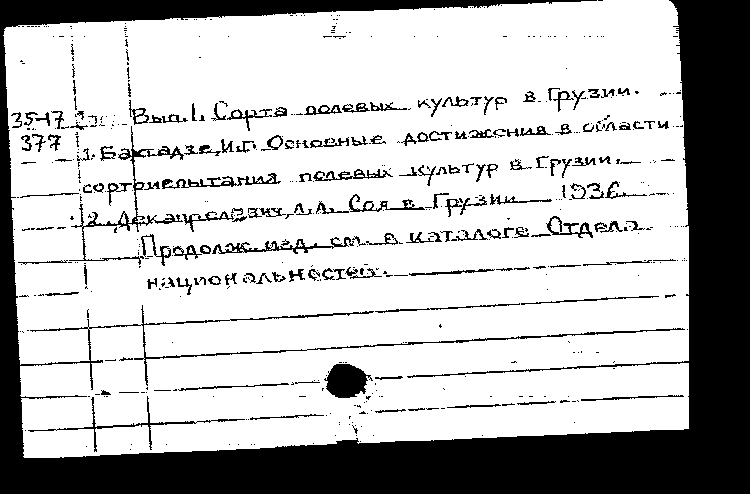 35-17 Вып. 1. Сорта полевых культур в Грузии.
377 1. Бахтадзе, И.Г. Основные достижения в области
сортоиспытания полевых культур в Грузии.
2. Декапрелевич, Л.Л. Соя в Грузии 1936.
Продолж. изд. см. в каталоге Отдела
национальностей.